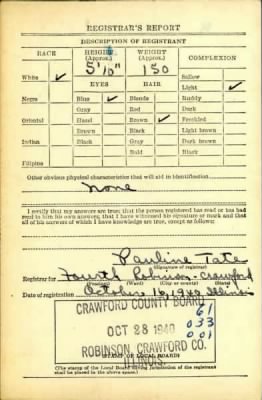 REGISTRAR'S REPORT
DESCRIPTION OF REGISTRANT
RACE HEIGHT (Approx.) WEIGHT (Approx.) COMPLEXION
5'10" 150
White ✓ Sallow
EYES HAIR Light ✓
Negro Blue ✓ Blonde Ruddy
Gray Red Dark
Oriental Hazel Brown ✓ Freckled
Brown Black Light brown
Indian Black Gray Dark brown
Bald Black
Filipino
Other obvious physical characteristics that will aid in identification
None
I certify that my answers are true; that the person registered has read or has had
read to him his own answers; that I have witnessed his signature or mark and that
all of his answers of which I have knowledge are true, except as follows:
Pauline Tate
(Signature of registrar)
Registrar for Fourth Robinson-Crawford
(Ward) (City or county) (State)
Date of registration October 16, 1940 Illinois
CRAWFORD COUNTY BOARD
61
OCT 28 1940
033
001
ROBINSON, CRAWFORD CO.
ILLINOIS.
(STAMP OF LOCAL BOARD)
(The stamp of the Local Board having jurisdiction of the registrant
shall be placed in the above space.)